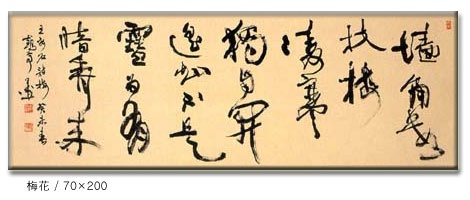 墙角数
枝梅
凌寒
獨自开
遥知不是
雪为有
暗香来
王安石诗梅 癸未书
梅花 / 70×200